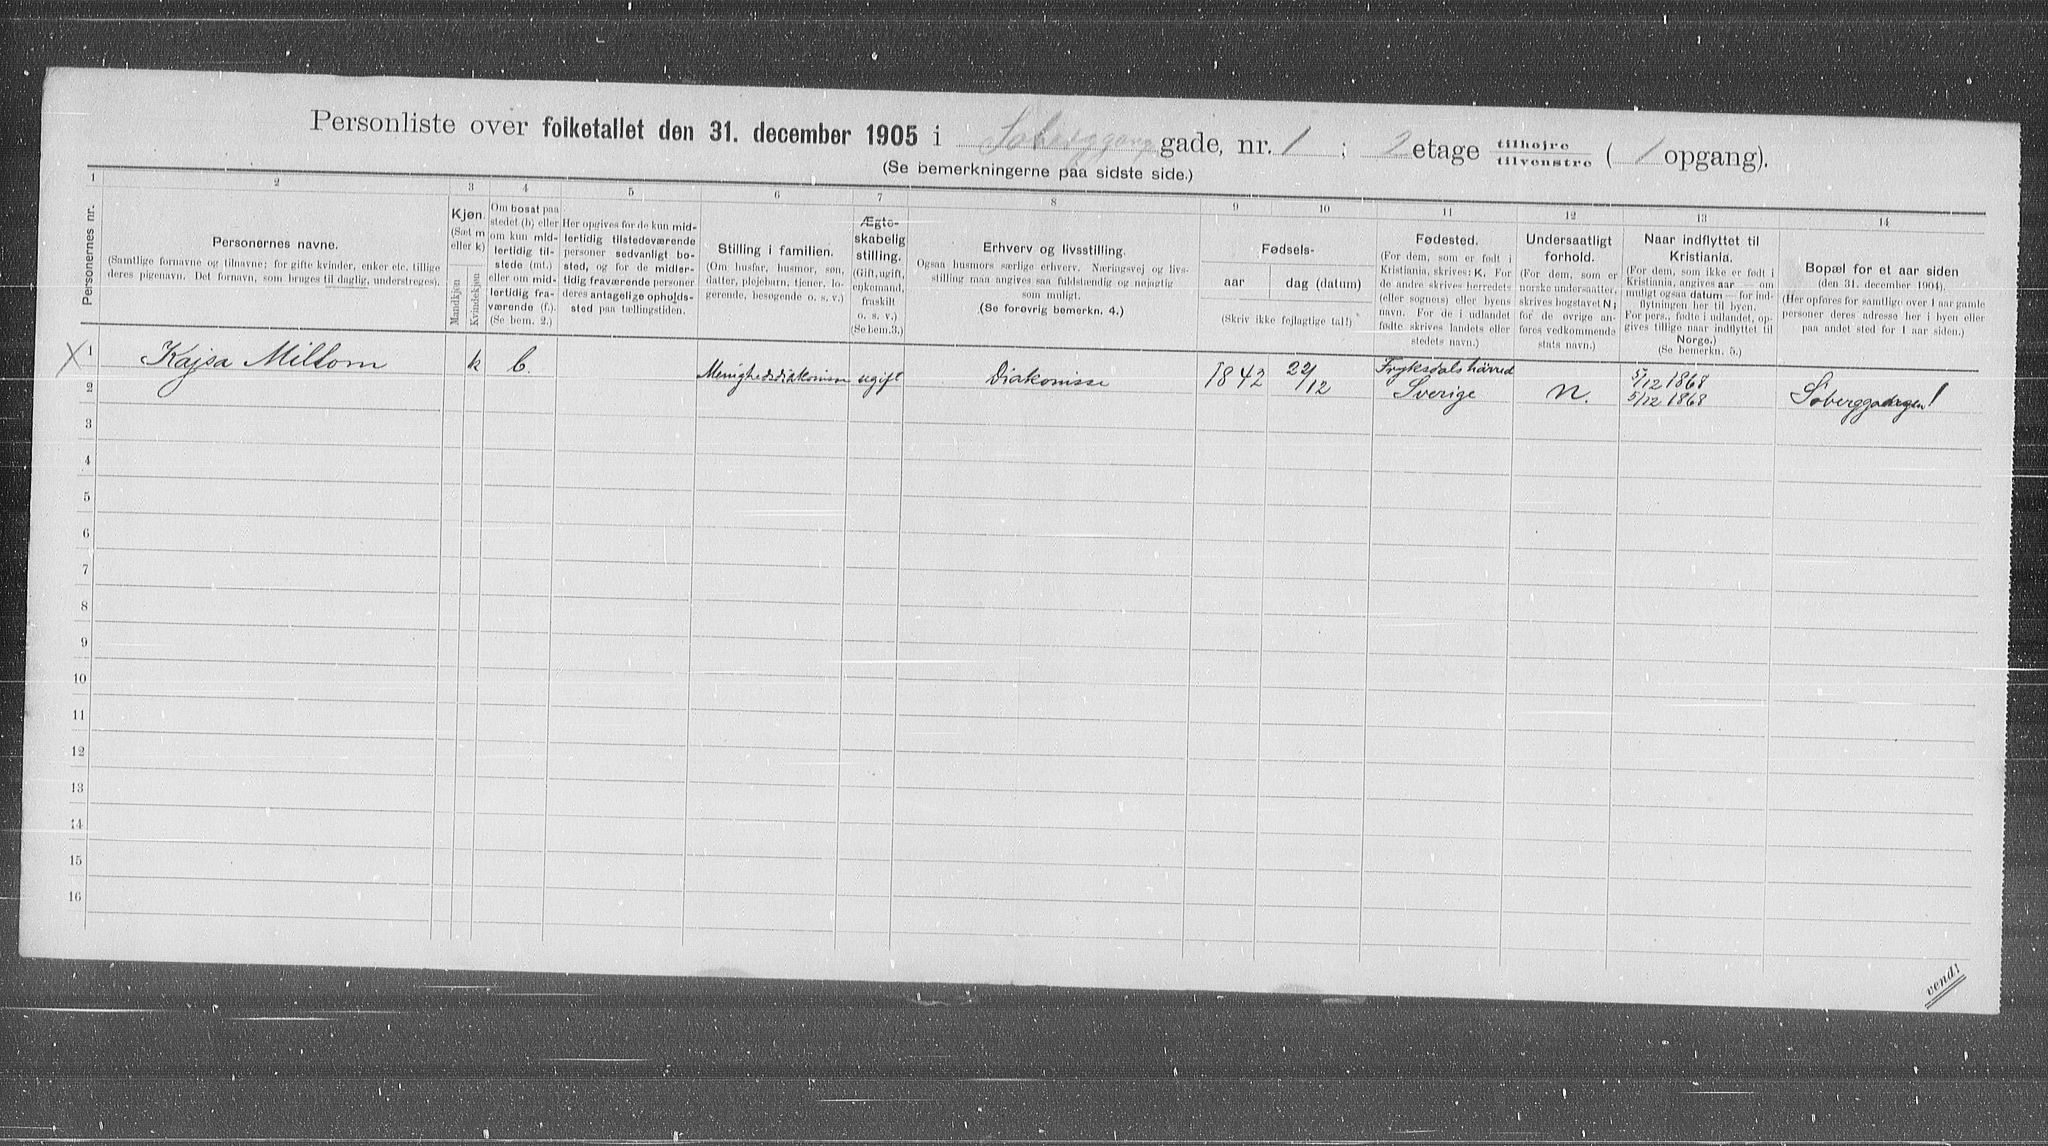 Personliste over folketallet den 31. december 1905 i Soberggang gade, nr. 1; 2 etage tilhøjre tilvenstre (1 opgang).
(Se bemerkningerne paa sidste side.)
1 2 3 4 5 6 7 8 9 10 11 12 13 14
Personernes nr.
Personernes navne.
(Samtlige fornavne og tilnavne; for gifte kvinder, enker etc. tillige
deres pigenavn. Det fornavn, som bruges til daglig, understreges).
Kjøn.
(Sæt m
eller k)
Mandkjøn
Kvindekjøn
Om bosat paa
stedet (b) eller
om kun mid-
lertidig til-
stede (mt.)
eller om mid-
lertidig fra-
værende (f.).
(Se bem. 2.)
Her opgives for de kun mid-
lertidig tilstedeværende
personer sedvanligt bo-
sted, og for de midler-
tidig fraværende personer
deres antagelige opholds-
sted paa tællingstiden.
Stilling i familien.
(Om husfar, husmor, søn,
datter, plejebarn, tjener, lo-
gerende, besøgende o. s. v.)
Ægte-
skabelig
stilling.
(Gift, ugift,
enkemand,
fraskilt
o. s. v.)
(Se bem.3.)
Erhverv og livsstilling.
Ogsaa husmors særlige erhverv. Næringsvej og livs-
stilling maa angives saa fuldstændig og nøjagtig
som muligt.
(Se forøvrig bemerkn. 4.)
Fødsels-
aar
dag (datum)
(Skriv ikke fejlagtige tal!)
Fødested.
(For dem, som er født i
Kristiania, skrives: K. For
de andre skrives herredets
(eller sognets) eller byens
navn. For de i udlandet
fødte skrives landets eller
stedets navn.)
Undersaatligt
forhold.
(For dem, som er
norske undersaatter,
skrives bogstavet N;
for de øvrige an-
føres vedkommende
stats navn.)
Naar indflyttet til
Kristiania.
(For dem, som ikke er født i
Kristiania, angives aar — om
muligt ogsaa datum — for ind-
flytningen her til byen.
For pers., fødte i udlandet, op-
gives tillige naar indflyttet til
Norge.)
(Se bemerkn. 5.)
Bopæl for et aar siden
(den 31. december 1904).
(Her opføres for samtlige over 1 aar gamle
personer deres adresse her i byen eller
paa andet sted for 1 aar siden.)
X 1 Kajsa Millom k b. Menighedsdiakonisse ugift Diakonisse 1842 22/12 Fryksdals härred
Sverige N. 5/12 1868
5/12 1868
2
3
4
5
6
7
8
9
10
11
12
13
14
15
16
vend!